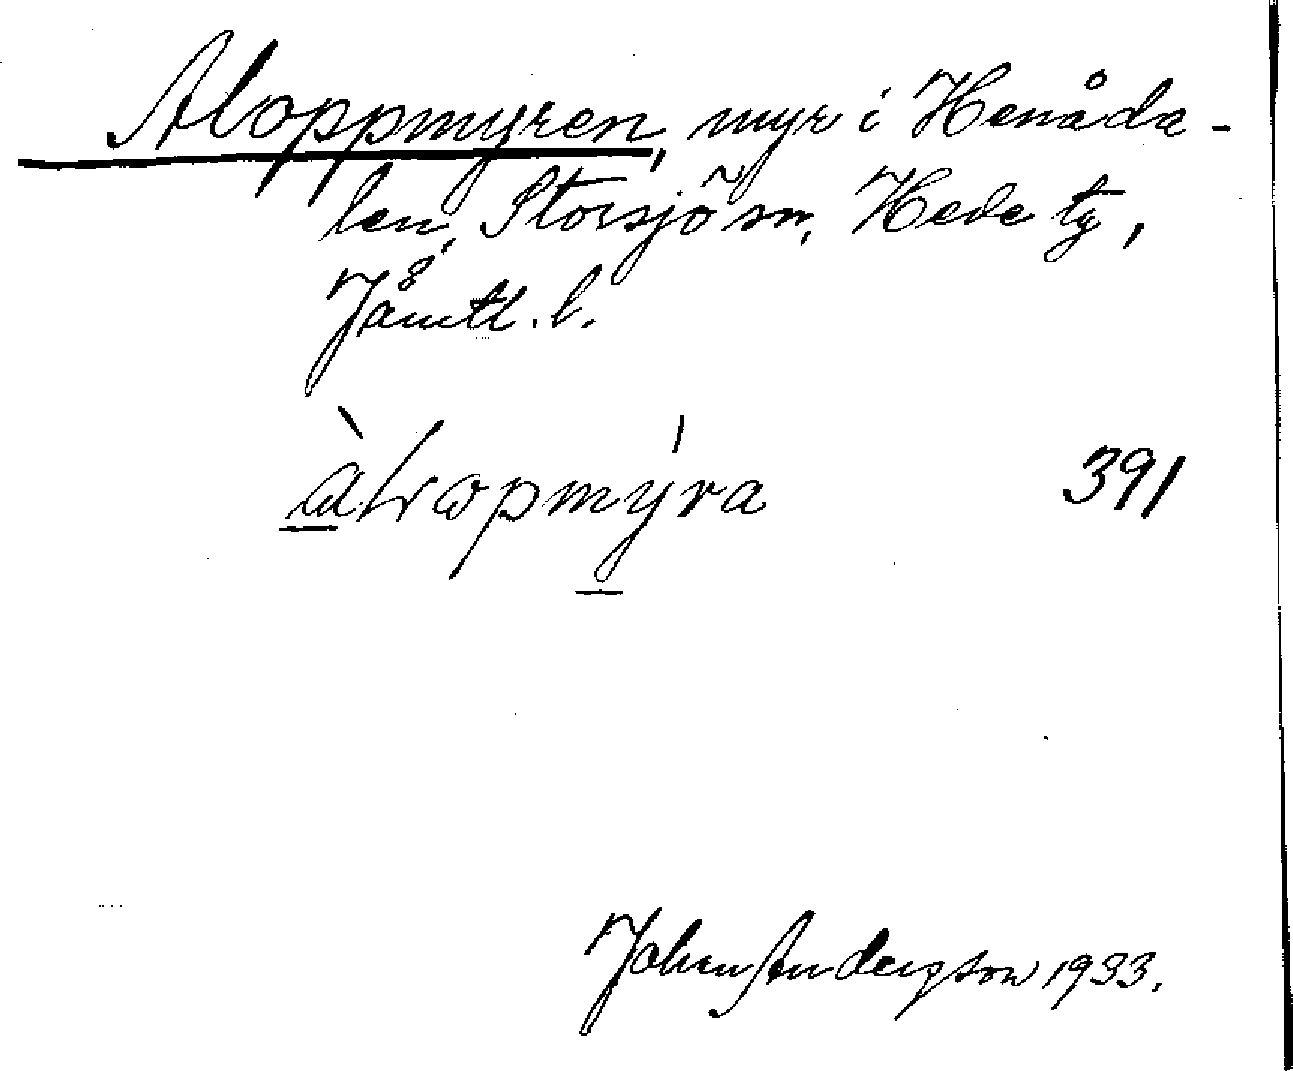 Aloppmyren, myr i Henåda-
len, Storsjö sn, Hede tg,
Jämtl. l.
àlvopmýra 391
Johan Andersson 1933.